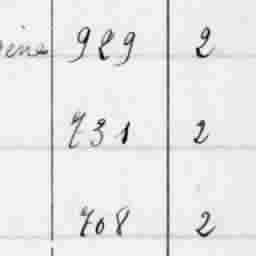 929 2
731 2
708 2